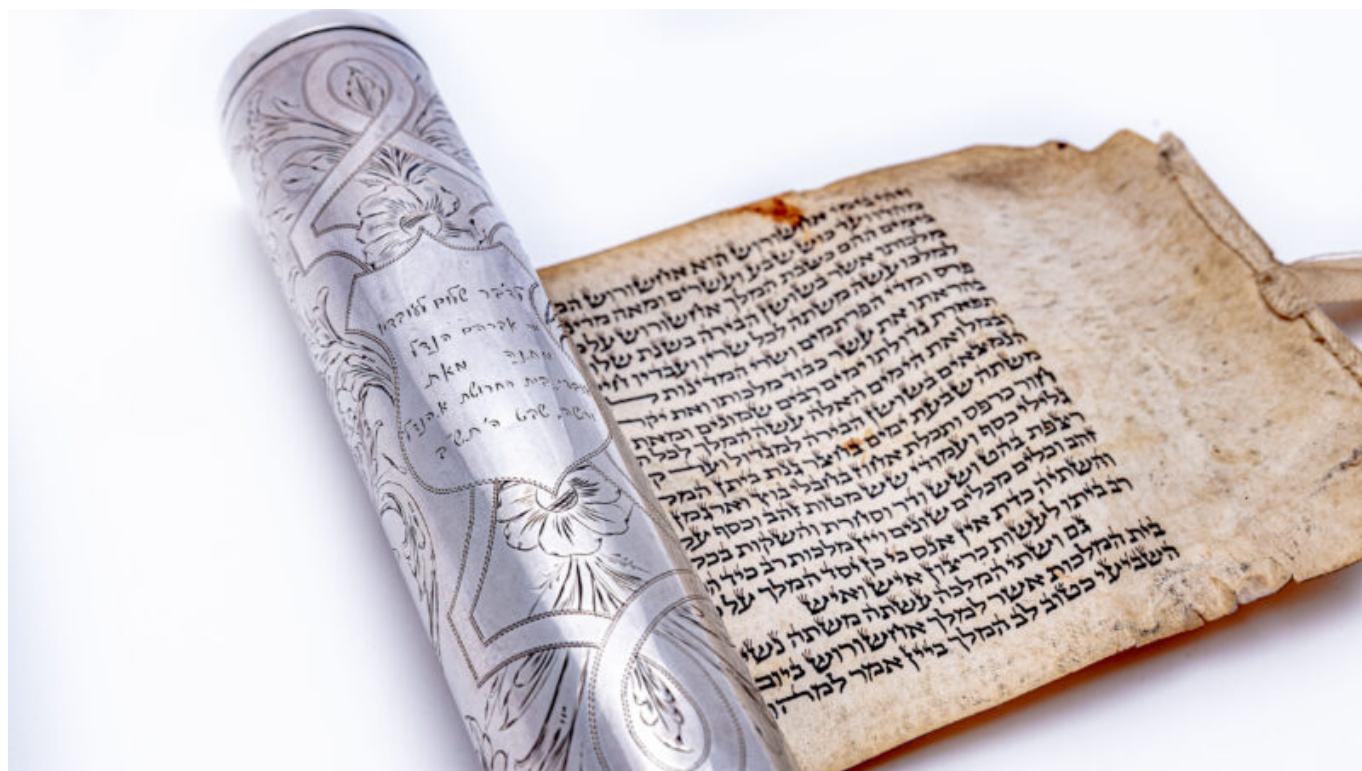 שלום
אברהם הנדל
מתנה מאת
בית חרושת א. הנדל
שבט
ויהי בימי אחשורוש הוא אחשורוש
מהדו ועד כוש שבע ועשרים ומאה
בימים ההם כשבת המלך אחשורוש על
מלכותו אשר בשושן הבירה בשנת
למלכו עשה משתה לכל שריו ועבדיו
פרס ומדי הפרתמים ושרי המדינות
בהראתו את עשר כבוד מלכותו ואת יקר
תפארת גדולתו ימים רבים שמונים ומאת
ובמלואת הימים האלה עשה המלך לכל
הנמצאים בשושן הבירה למגדול ועד
משתה שבעת ימים בחצר גנת ביתן
חור כרפס ותכלת אחוז בחבלי בוץ וארגמן
גלילי כסף ועמודי שש מטות זהב וכסף על
רצפת בהט ושש ודר וסחרת והשקות
זהב וכלים מכלים שונים ויין מלכות רב כיד
והשתיה כדת אין אנס כי כן יסד המלך על
רב ביתו לעשות כרצון איש ואיש
גם ושתי המלכה עשתה משתה
בית המלכות אשר למלך אחשורוש ביום
השביעי כטוב לב המלך ביין אמר